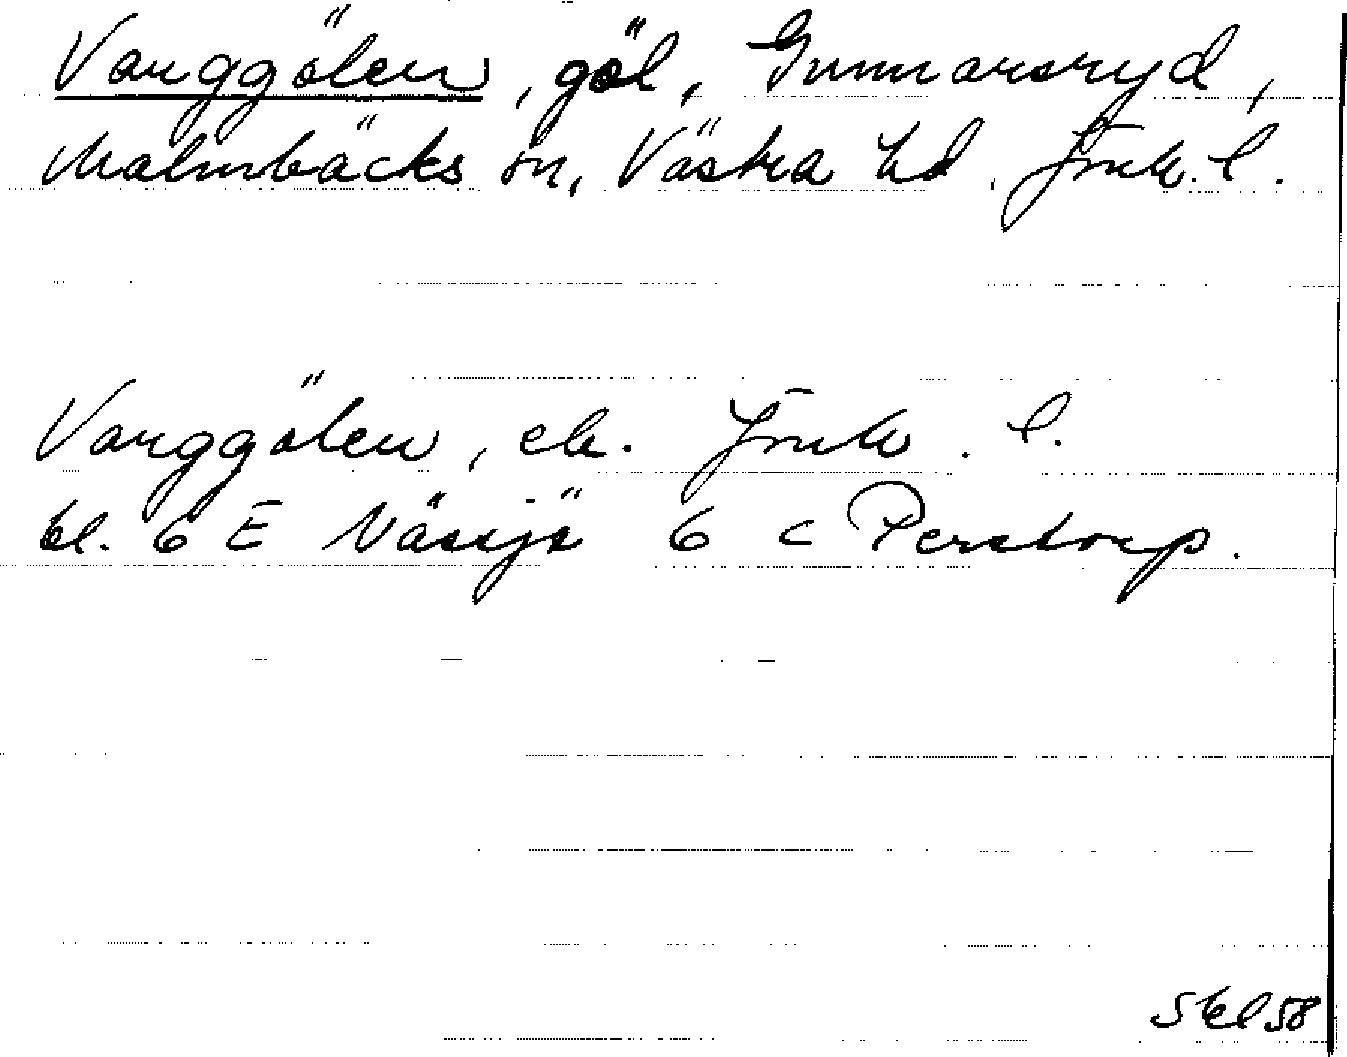 Vanggölen, göl, Gunnarsryd,
Malmbäcks sn, Västra hd. Jönk. l.
Vanggölen, ek. Jönk. l.
bl. 6 E Nässjö 6 c Perstorp.